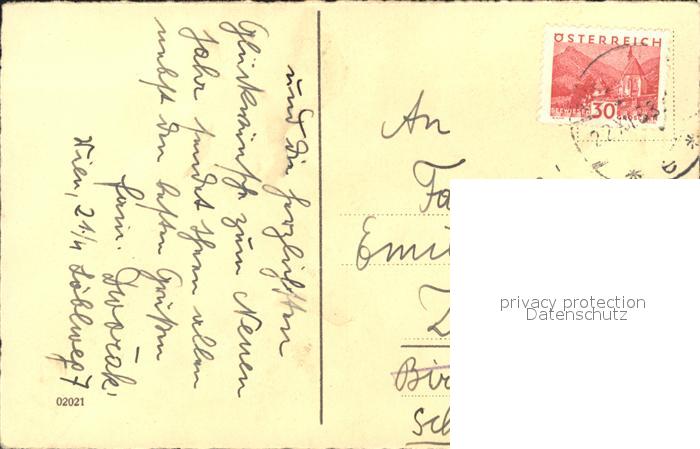 und die herzlichsten
Glückwünsche zum Neuen
Jahr sendet Ihnen allen
nebst den besten Grüßen
Fam. Dvořak.
Wien, 21/4 Löblweg 7
02021
ÖSTERREICH
30
An
Fa
Emi
Bir
Sch
privacy protection
Datenschutz